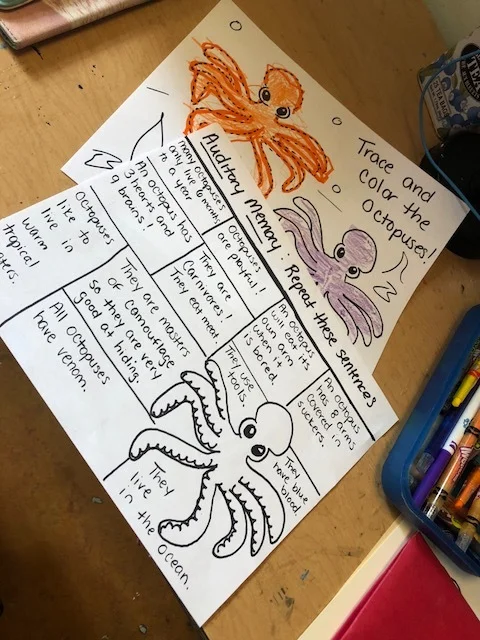 Trace and
Color the
Octopuses!
Auditory Memory: Repeat these sentences
many octopuses
only live 6 months
to a year
Octopuses
are playful!
An octopus
will eat its
own arm
when it
is bored.
An octopus
has 8 arms
covered in
suckers.
An octopus has
3 hearts and
9 brains!
They are
Carnivores!
They eat meat.
They use
tools.
They blue
have blood.
Octopuses
like to
live in
warm
tropical
They are masters
of camouflage
so they are very
good at hiding.
All octopuses
have venom.
They
live
in
the
ocean.